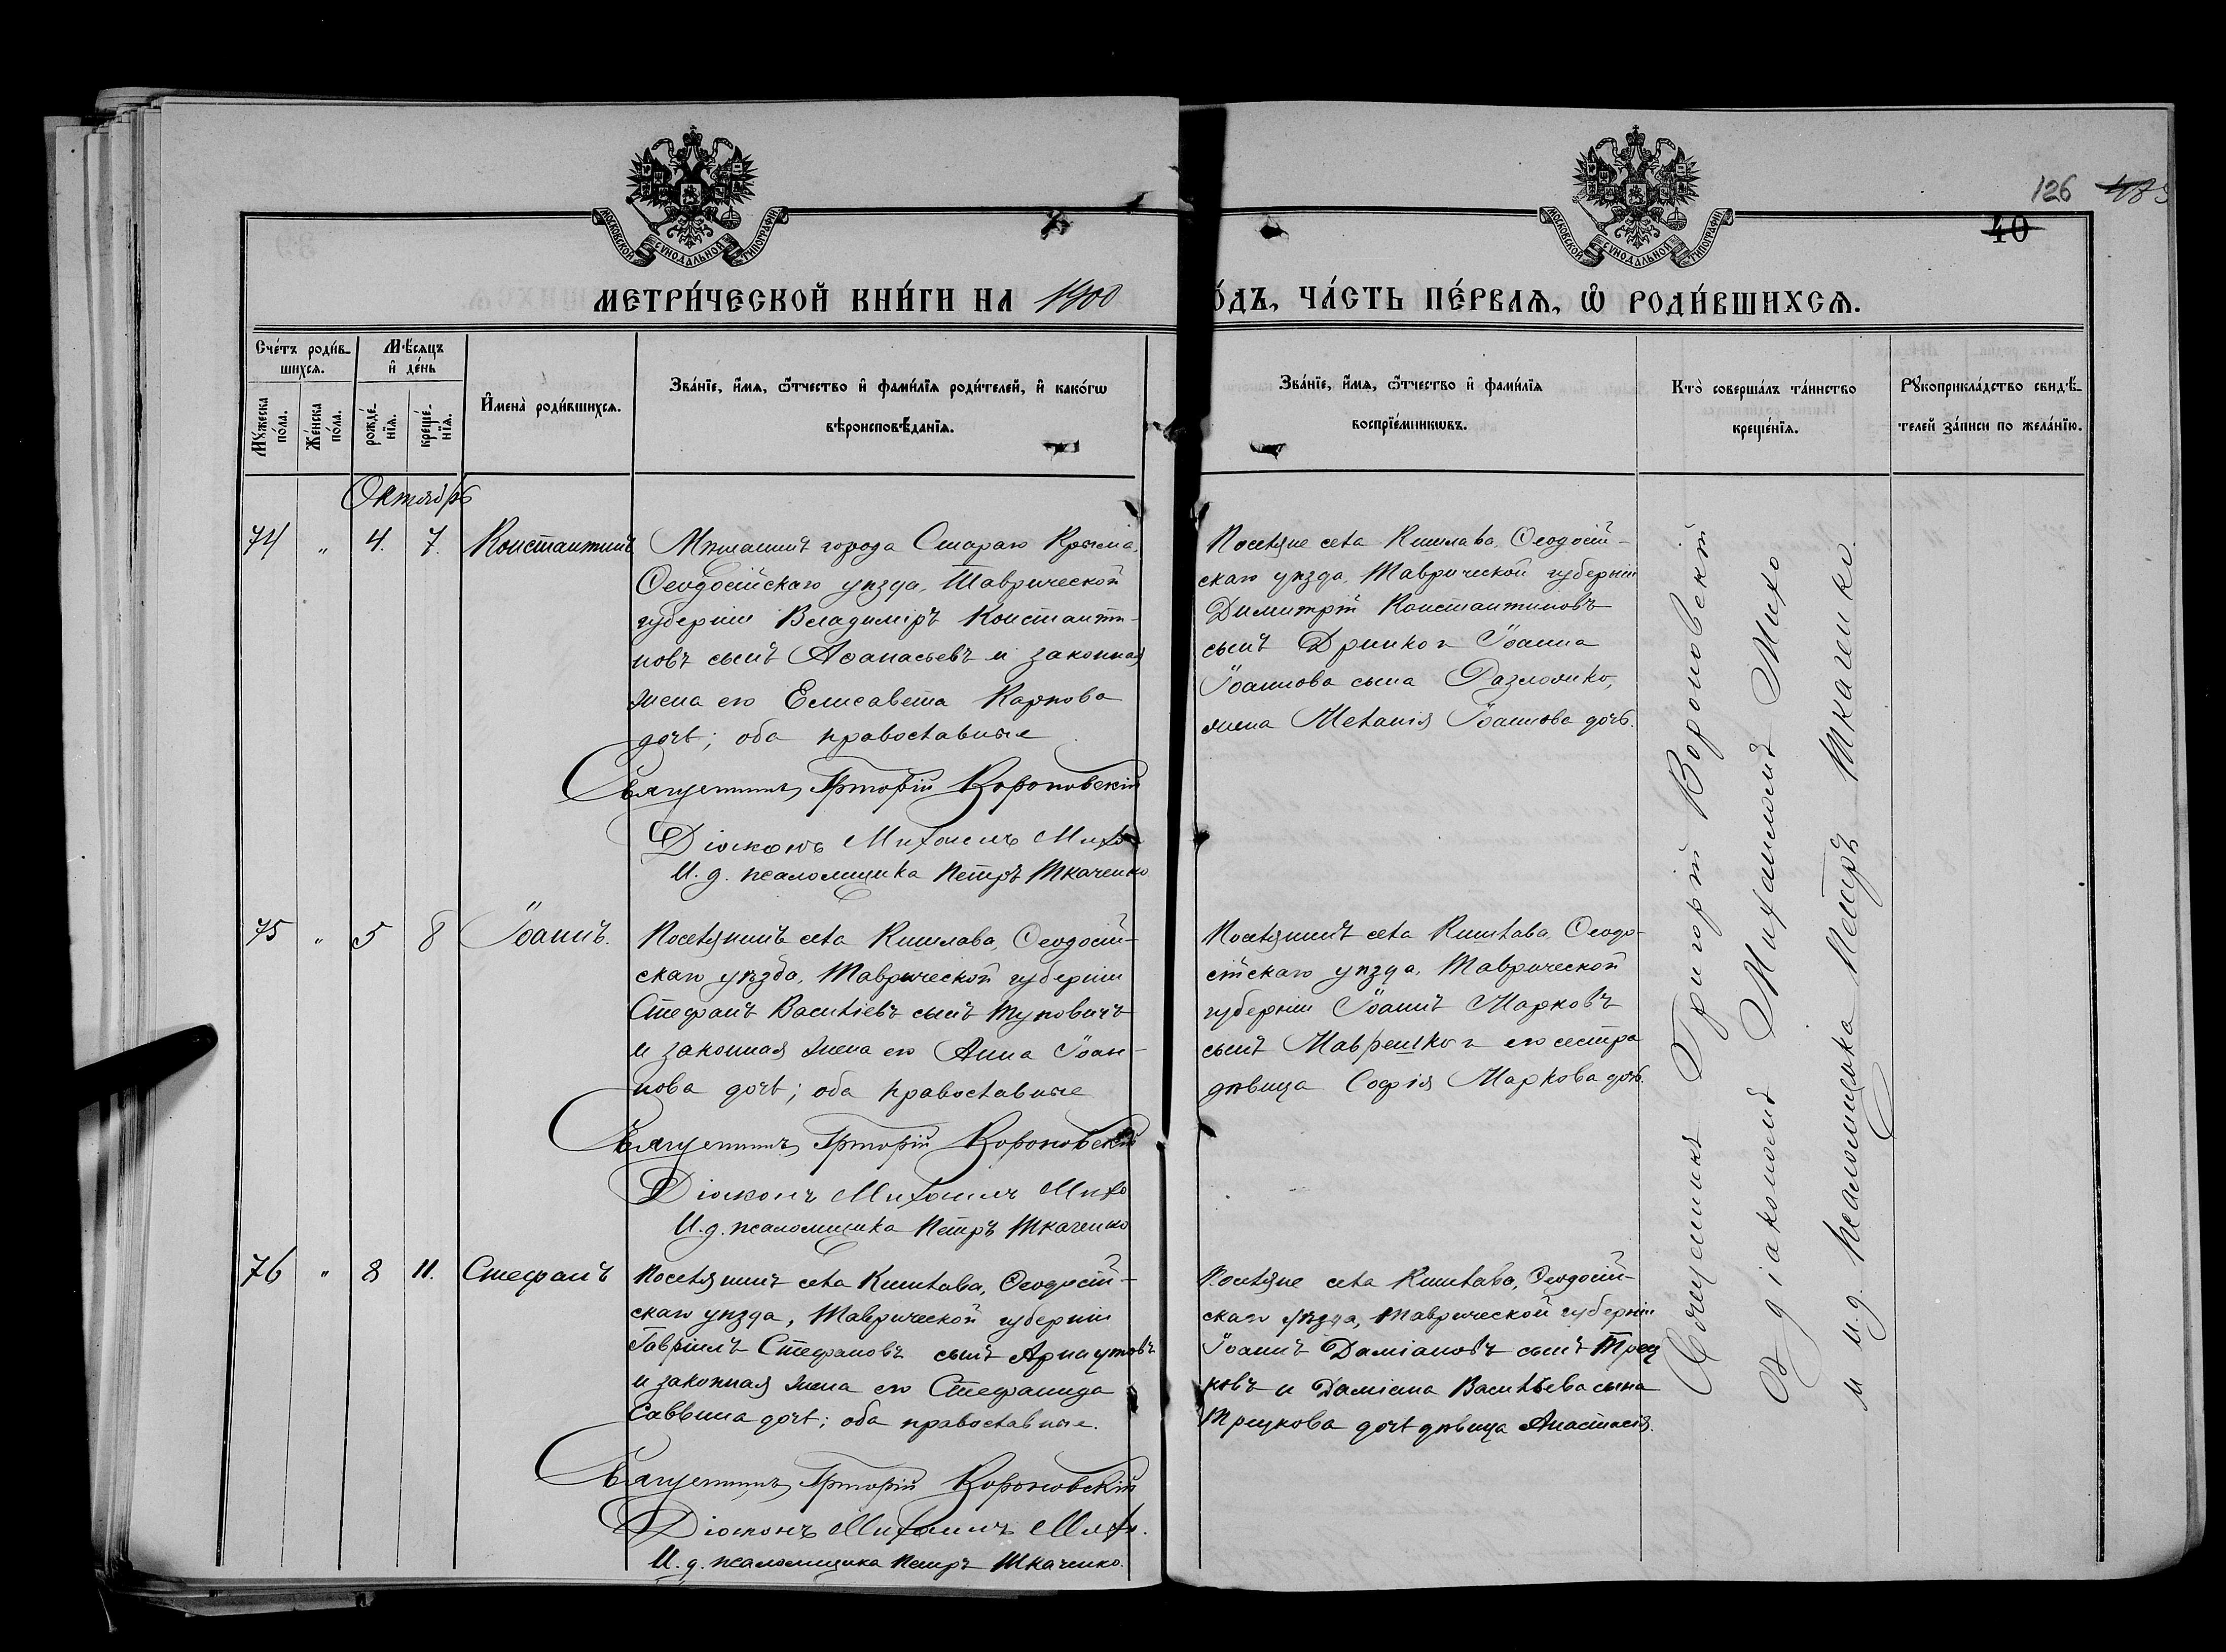 126
40
МОСКОВСКОЙ СУНОДАЛЬНОЙ ТИПОГРАФІИ
МОСКОВСКОЙ СУНОДАЛЬНОЙ ТИПОГРАФІИ
МЕТРИ́ЧЕСКОЙ КНИ́ГИ НА 1900
О́ДЪ, ЧА́СТЬ ПЕ́РВАѦ, Ѡ҆ РОДИ́ВШИХСѦ.
Сче́тъ роди́в-
шихсѧ.
Мѣ́сѧцъ
и҆ де́нь
Мꙋ́жеска
по́ла.
Же́нска
по́ла.
рожде́-
нїѧ.
креще́-
нїѧ.
И҆мена̀ роди́вшихсѧ.
Зва́нїе, и҆́мѧ, ѻ҆́тчество и҆ фами́лїѧ роди́телей, и҆ како́гѡ
вѣроисповѣ́данїѧ.
Зва́нїе, и҆́мѧ, ѻ҆́тчество и҆ фами́лїѧ
воспрїе́мникѡвъ.
Кто̀ соверша́лъ та́инство
креще́нїѧ.
Рꙋкоприкла́дство свидѣ́-
телей за́писи по жела́нїю.
Октябрь
74 " 4. 7. Константинъ
Мѣщанинъ города Стараго Крыма,
Ѳеодосійскаго уѣзда, Таврической
губерніи Владиміръ Константи-
новъ сынъ Аѳанасьевъ и законная
жена его Елисавета Карпова
дочь; оба православные
Священникъ Григорій Вороновскій
Діаконъ Михаилъ Михо
И. д. псаломщика Петръ Ткаченко
Поселяне села Кишлава, Ѳеодосій-
скаго уѣзда, Таврической губерніи
Димитрій Константиновъ
сынъ и Іоанна
Іоаннова сына
жена Меланія Іоаннова дочь.
75 " 5 8 Іоаннъ.
Поселянинъ села Кишлава, Ѳеодосій-
скаго уѣзда, Таврической губерніи
Стефанъ Василіевъ сынъ Туповичъ
и законная жена его Анна Іоан-
нова дочь; оба православные
Священникъ Григорій Вороновскій
Діаконъ Михаилъ Михо
И. д. псаломщика Петръ Ткаченко
Поселянинъ села Кишлава, Ѳеодо-
сійскаго уѣзда, Таврической
губерніи Іоаннъ Марковъ
сынъ и его сестра
дѣвица Софія Маркова дочь.
76 " 8 11. Стефанъ
Поселянинъ села Кишлава, Ѳеодосій-
скаго уѣзда, Таврической губерніи
Гавріилъ Стефановъ сынъ Арнаутовъ
и законная жена его Стефанида
Саввина дочь; оба православные.
Священникъ Григорій Вороновскій
Діаконъ Михаилъ Михо.
И. д. псаломщика Петръ Ткаченко.
Поселяне села Кишлава, Ѳеодосій-
скаго уѣзда, Таврической губерніи
Іоаннъ Даміановъ сынъ Трец
ковъ и Даміана Васильева сына
Трецкова дочь дѣвица Анастасія.
Священникъ Григорій Вороновскій
съ діакономъ Михаиломъ Михо
и и. д. псаломщика Петръ Ткаченко.